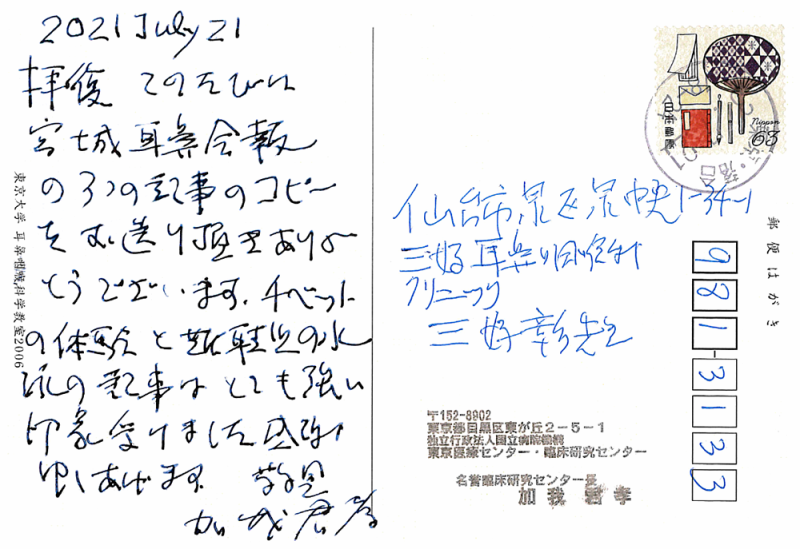 2021 July 21
拝復 このたびは
宮城耳鼻会報
の3つの記事のコピー
をお送り頂きありが
とうございます。チベット
の体験と難聴児の水
泳の記事はとても強い
印象受けました。感謝
申しあげます。 敬具
加我君孝
東京大学 耳鼻咽喉科学教室2006
日本郵便
Nippon
63
仙台市泉区泉中央1-34-1
三好耳鼻咽喉科
クリニック
三好彰先生
郵便はがき
981-3133
〒152-8902
東京都目黒区東が丘2-5-1
独立行政法人国立病院機構
東京医療センター・臨床研究センター
名誉臨床研究センター長
加我君孝